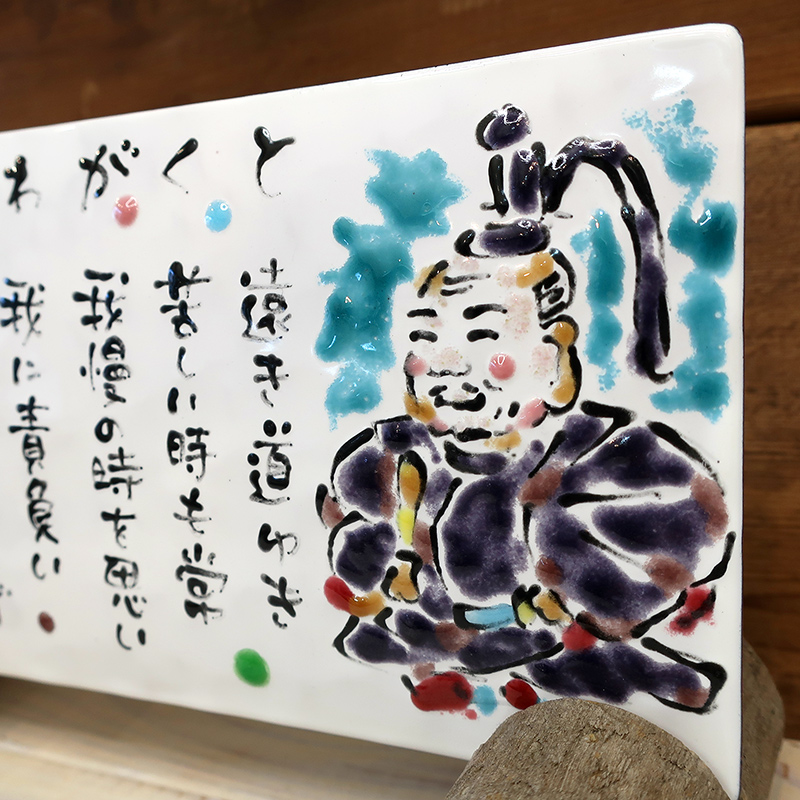 と 遠き道ゆき
く 苦しい時も
が 我慢の時を思い
わ 我に責負い